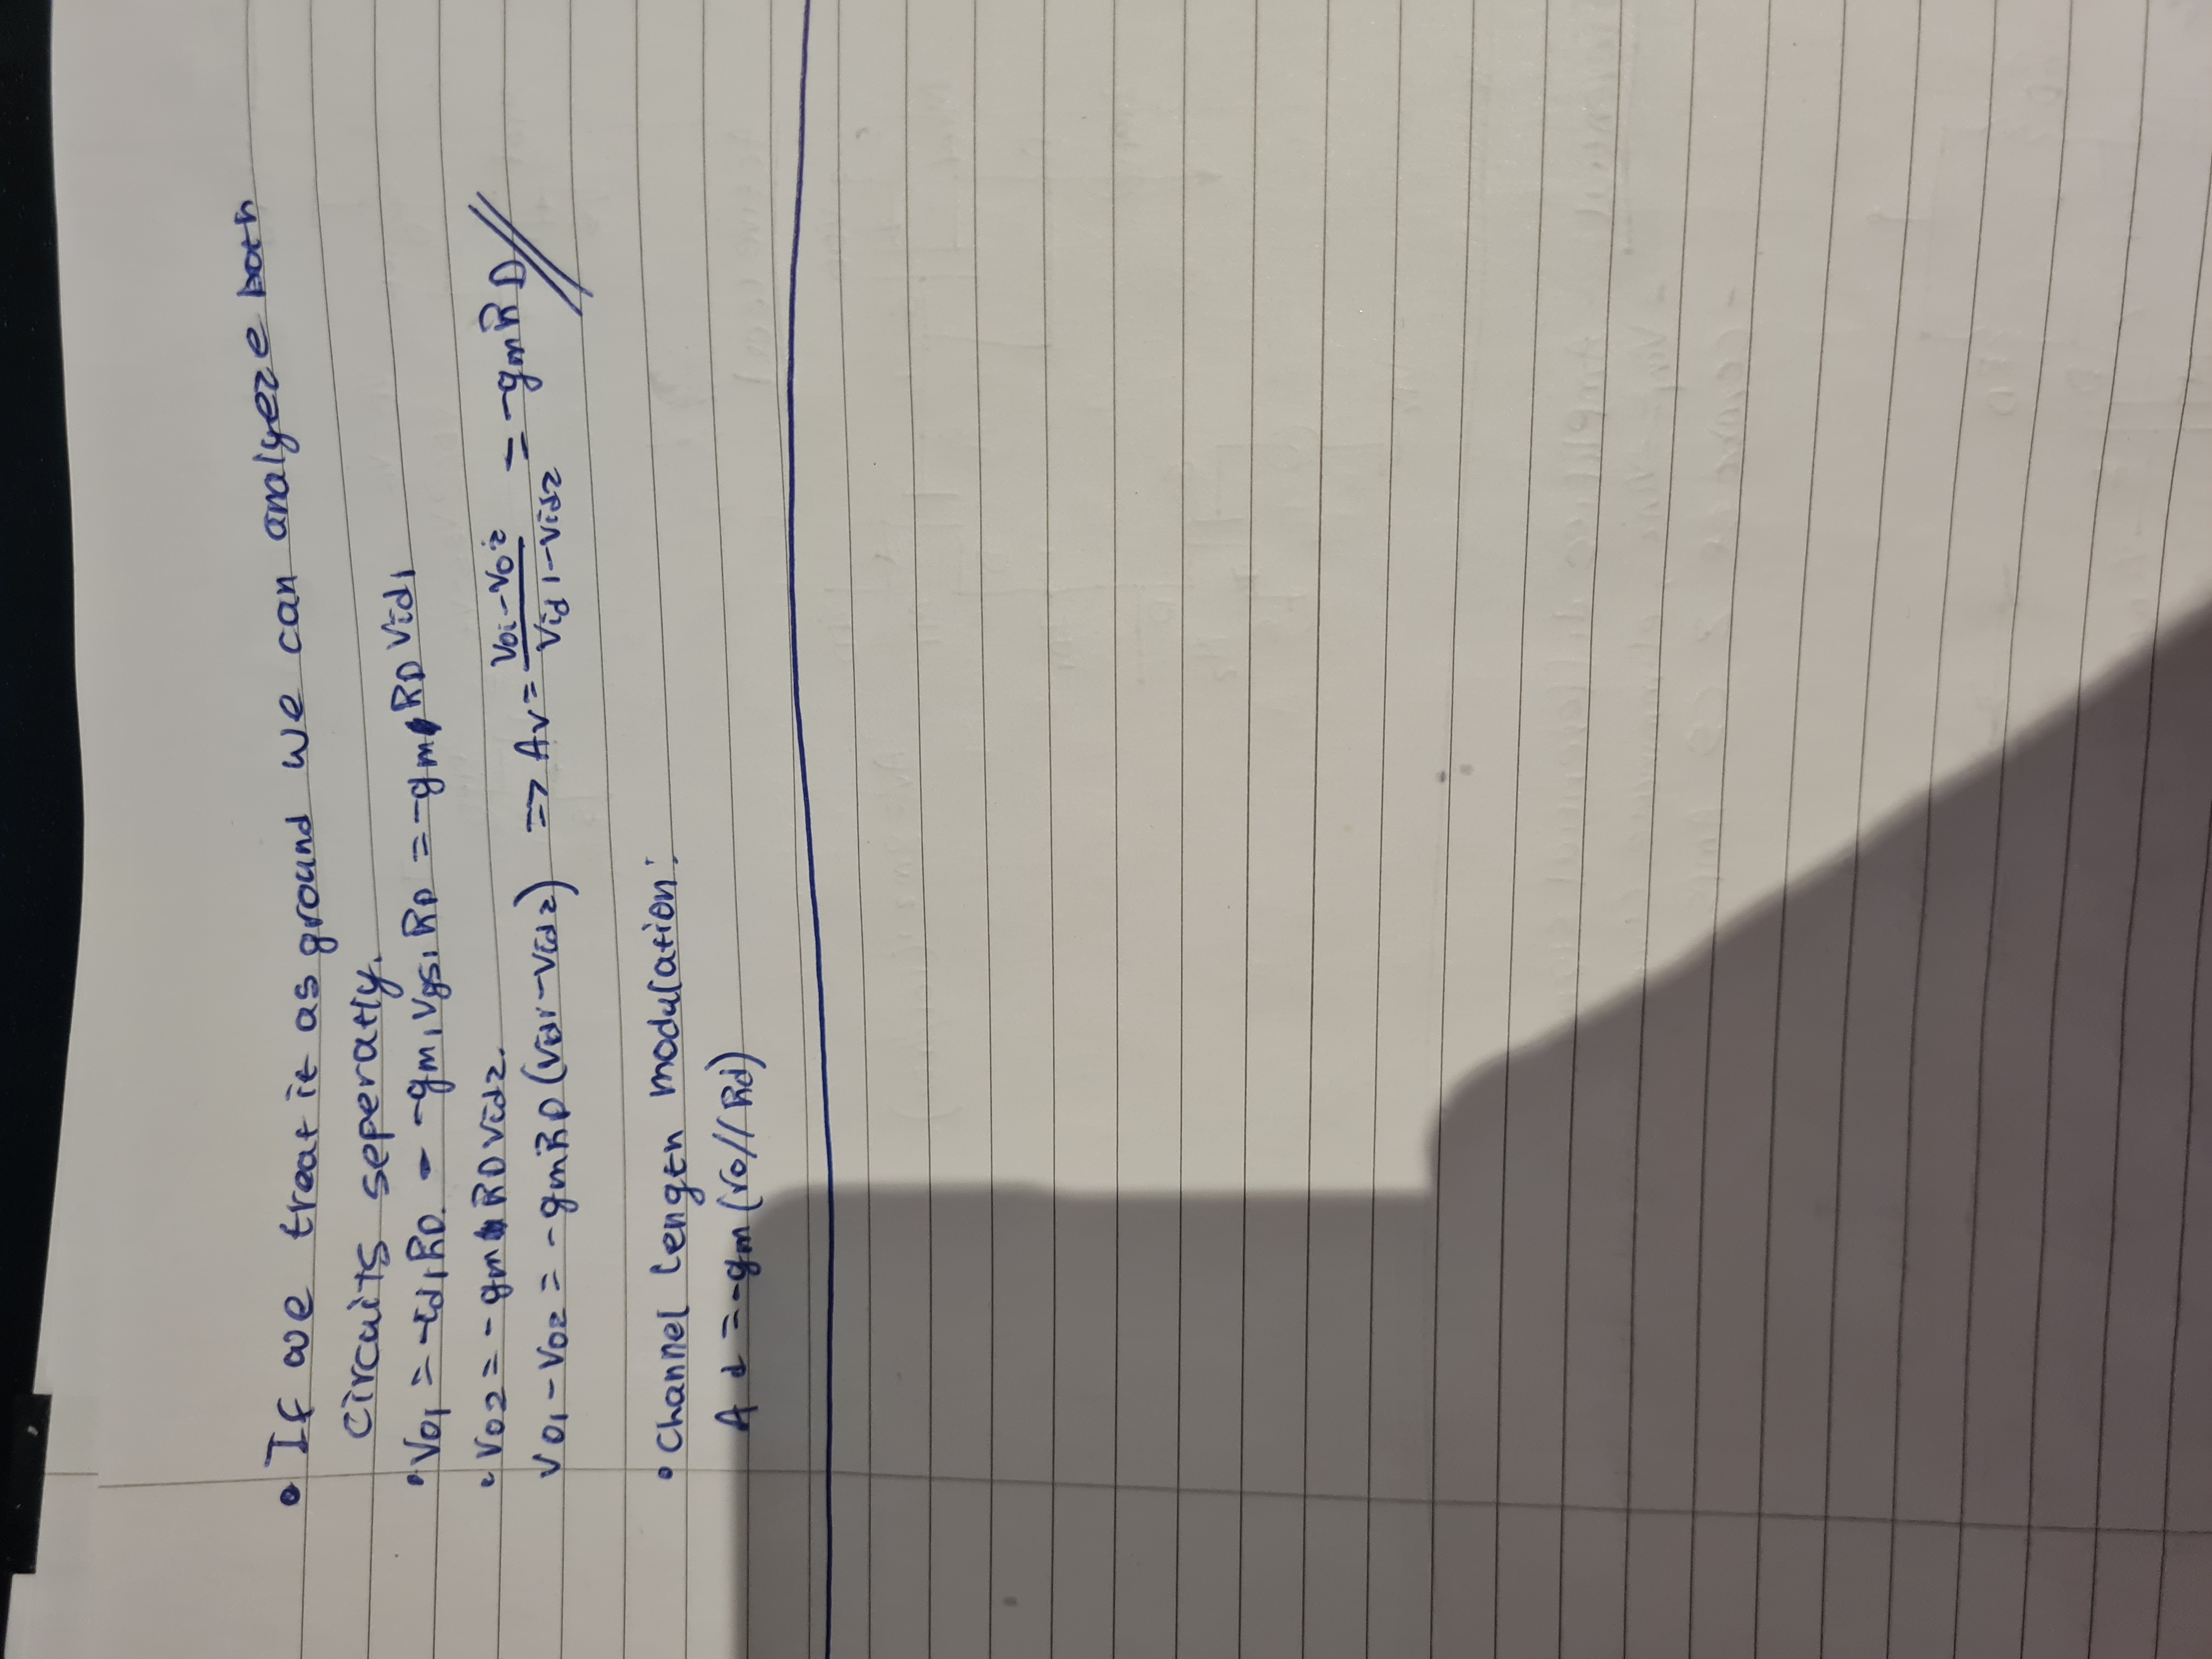 • If we treat it as ground we can analyeze both
circuits seperatly.
• Vo1 = -id1RD. - -gm1Vgs1RD = -gm RD Vid1
• Vo2 = -gm RD Vid2.
Vo1-Vo2 = -gmRD(Vid1-Vid2) => Av = Vo1-Vo2 / Vid1-Vid2 = -gmRD//
• Channel length modulation:
Ad = -gm (ro//Rd)